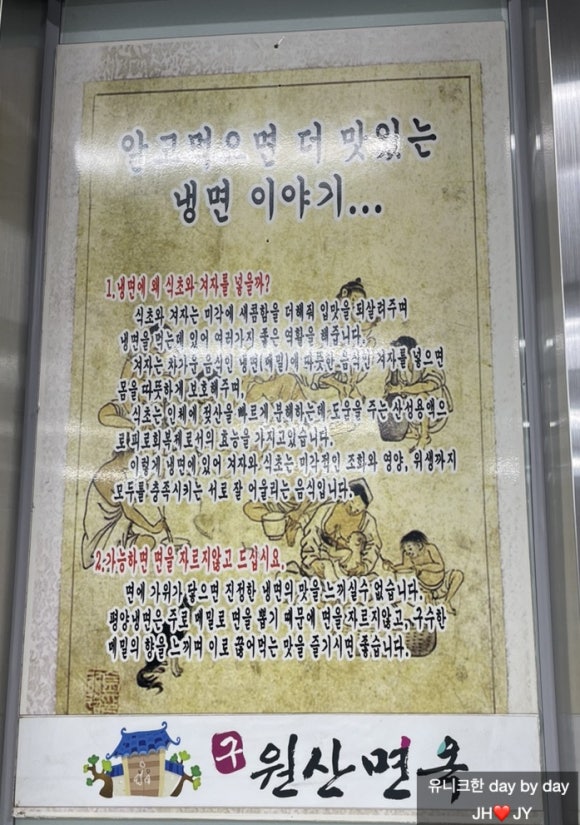 알고먹으면 더 맛있는
냉면 이야기...
1.냉면에 왜 식초와 겨자를 넣을까?
식초와 겨자는 미각에 새콤함을 더해줘 입맛을 되살려주며
냉면을 먹는데 있어 여러가지 좋은 역활을 해줍니다.
겨자는 차가운 음식인 냉면(메밀)에 따뜻한 음식인 겨자를 넣으면
몸을 따뜻하게 보호해주며,
식초는 인체에 젖산을 빠르게 분해하는데 도움을 주는 산성용액으
로 피로회복제로서의 효능을 가지고있습니다.
이렇게 냉면에 있어 겨자와 식초는 미각적인 조화와 영양, 위생까지
모두를 충족시키는 서로 잘 어울리는 음식입니다.
2.가능하면 면을 자르지않고 드십시요.
면에 가위가 닿으면 진정한 냉면의 맛을 느끼실수 없습니다.
평양냉면은 주로 메밀로 면을 뽑기 때문에 면을 자르지않고, 구수한
메밀의 향을 느끼며 이로 끊어먹는 맛을 즐기시면 좋습니다.
구 원산면옥
유니크한 day by day
JH❤️JY